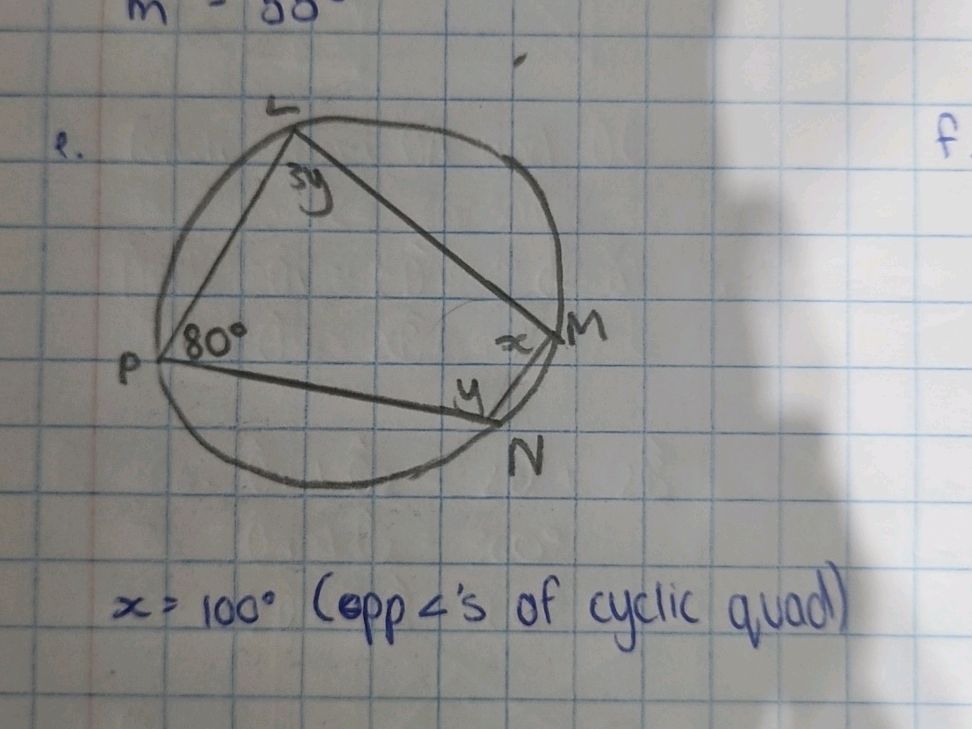 e.
f.
L
3y
80°
x
M
P
y
N
x = 100° (opp <'s of cyclic quad)